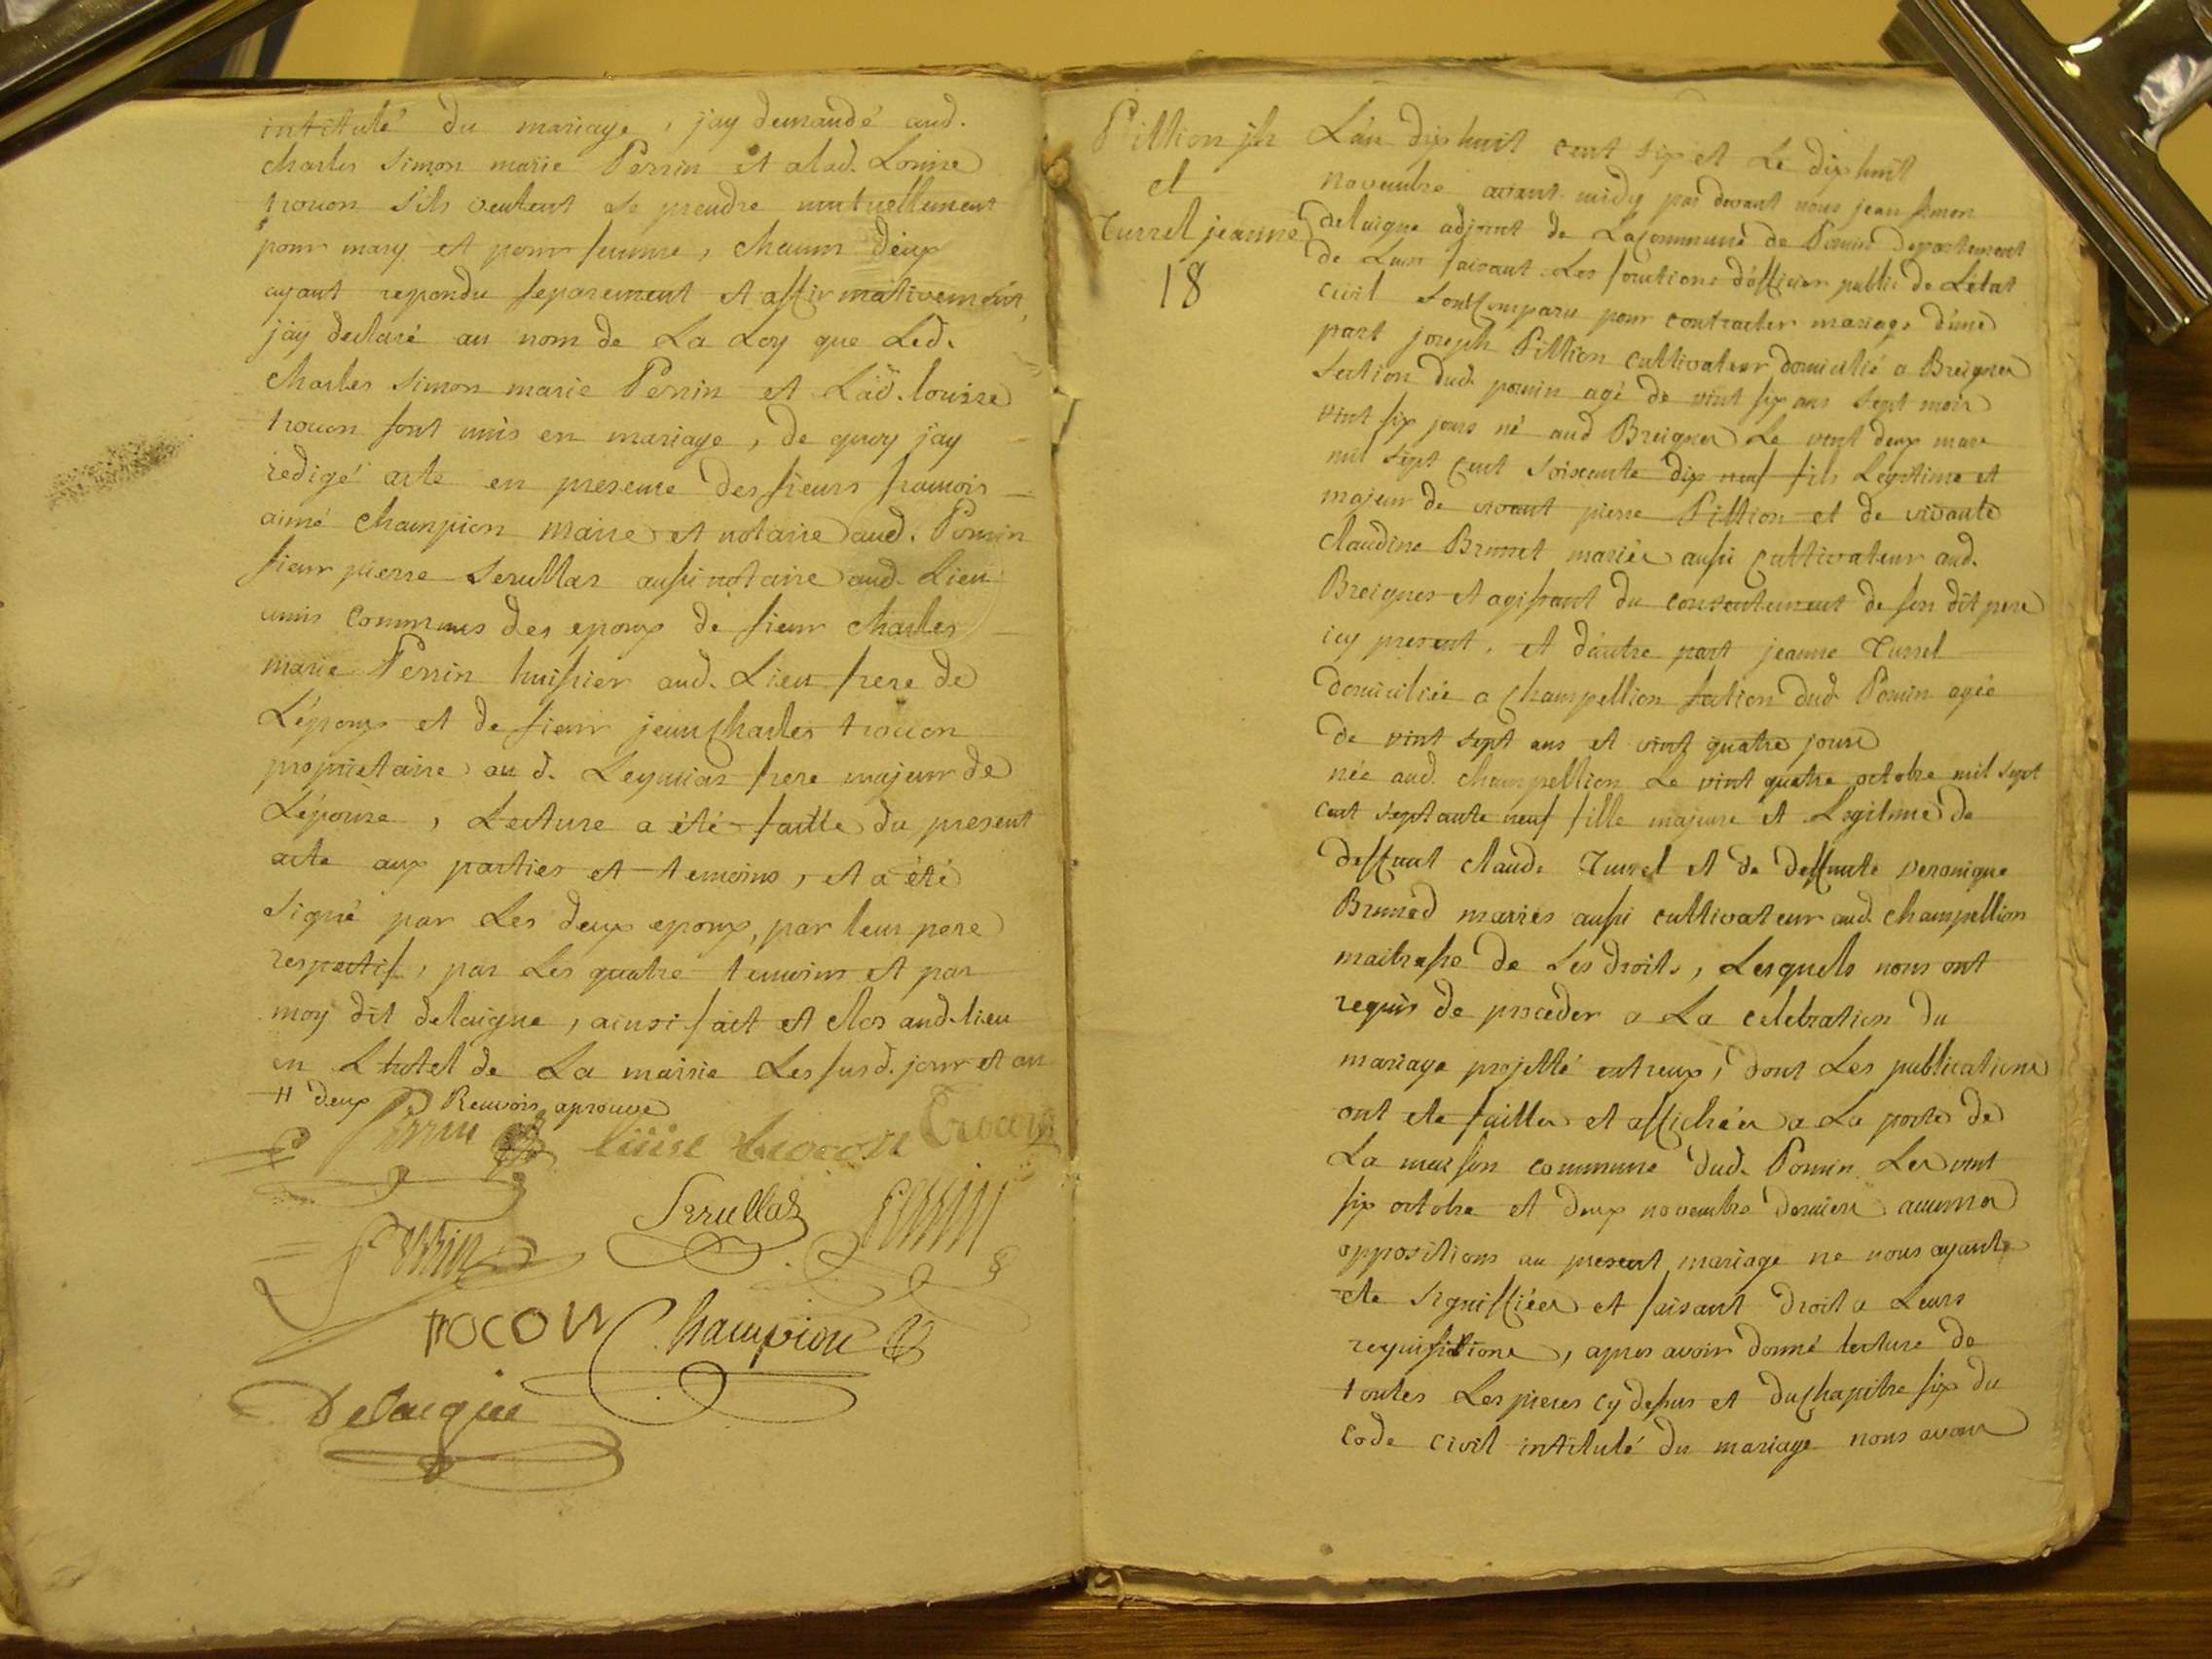 intitulé du mariage, jay demandé aud.
charles simon marie Perrin et alad. Louise
trocon sils veulent se prendre mutuellement
pour mary et pour femme, chacun d'eux
ayant repondu separement et affirmativement,
jay declaré au nom de La Loy que Led.
charles simon marie Perrin et Lad. louise
trocon sont unis en mariage, de quoy jay
redigé acte en presence des sieurs francois
aimé champion maire et notaire aud. Poncin
sieur pierre Serullas aussi notaire aud. Lieu
amis communs des epoux de sieur charles
marie Perrin huissier aud. Lieu frere de
L'époux et de sieur jean charles trocon
proprietaire au d. Leymiat frere majeur de
L'épouse, Lecture a été faitte du present
acte aux parties et temoins, et a été
signé par Les deux epoux, par leur pere
respectif, par Les quatre temoins et par
moy dit delaigue, ainsi fait et clos aud. lieu
en L hotel de La mairie Les susd. jour et an
deux Renvois aprouve
Perrin louise trocon Trocon
Serullas Perrin
Perrin
trocon Champion
Delaigue
Pillion jh
et
Turrel jeanne
18
L'an dix huit cent six et Le dix huit
novembre avant midy par devant nous jean simon
delaigue adjoint de La Commune de Poncin departement
de Lain faisant Les fonctions d'officier public de L'état
civil sont comparu pour contracter mariage d'une
part joseph Pillion cultivateur domicilié a Breignes
section dud. poncin agé de vint six ans sept mois
vint six jours né aud Breignes Le vint deux mars
mil sept cent soixante dix neuf fils Legitime et
majeur de vivant pierre Pillion et de vivante
claudine Brunet mariés aussi cultivateur aud.
Breignes et agissant du consentement de son dit pere
icy present, et d'autre part jeanne Turrel
domiciliée a Champellion section dud. Poncin agée
de vint sept ans et vint quatre jours
née aud. champellion Le vint quatre octobre mil sept
cent septante neuf fille majeure et Legitime de
deffunt claude Turrel et de deffunte veronique
Bruned mariés aussi cultivateur aud. champellion
maitresse de ses droits, Lesquels nous ont
requis de proceder a La celebration du
mariage projetté entreux, dont Les publications
ont ete faittes et affichées a La porte de
La maison commune dud. Poncin Les vint
six octobre et deux novembre derniers aucunes
oppositions au present mariage ne nous ayant
ete signiffiées et faisant droit a Leurs
requisitions, apres avoir donné lecture de
toutes Les pieces cy dessus et du chapitre six du
code civil intitulé du mariage nous avons